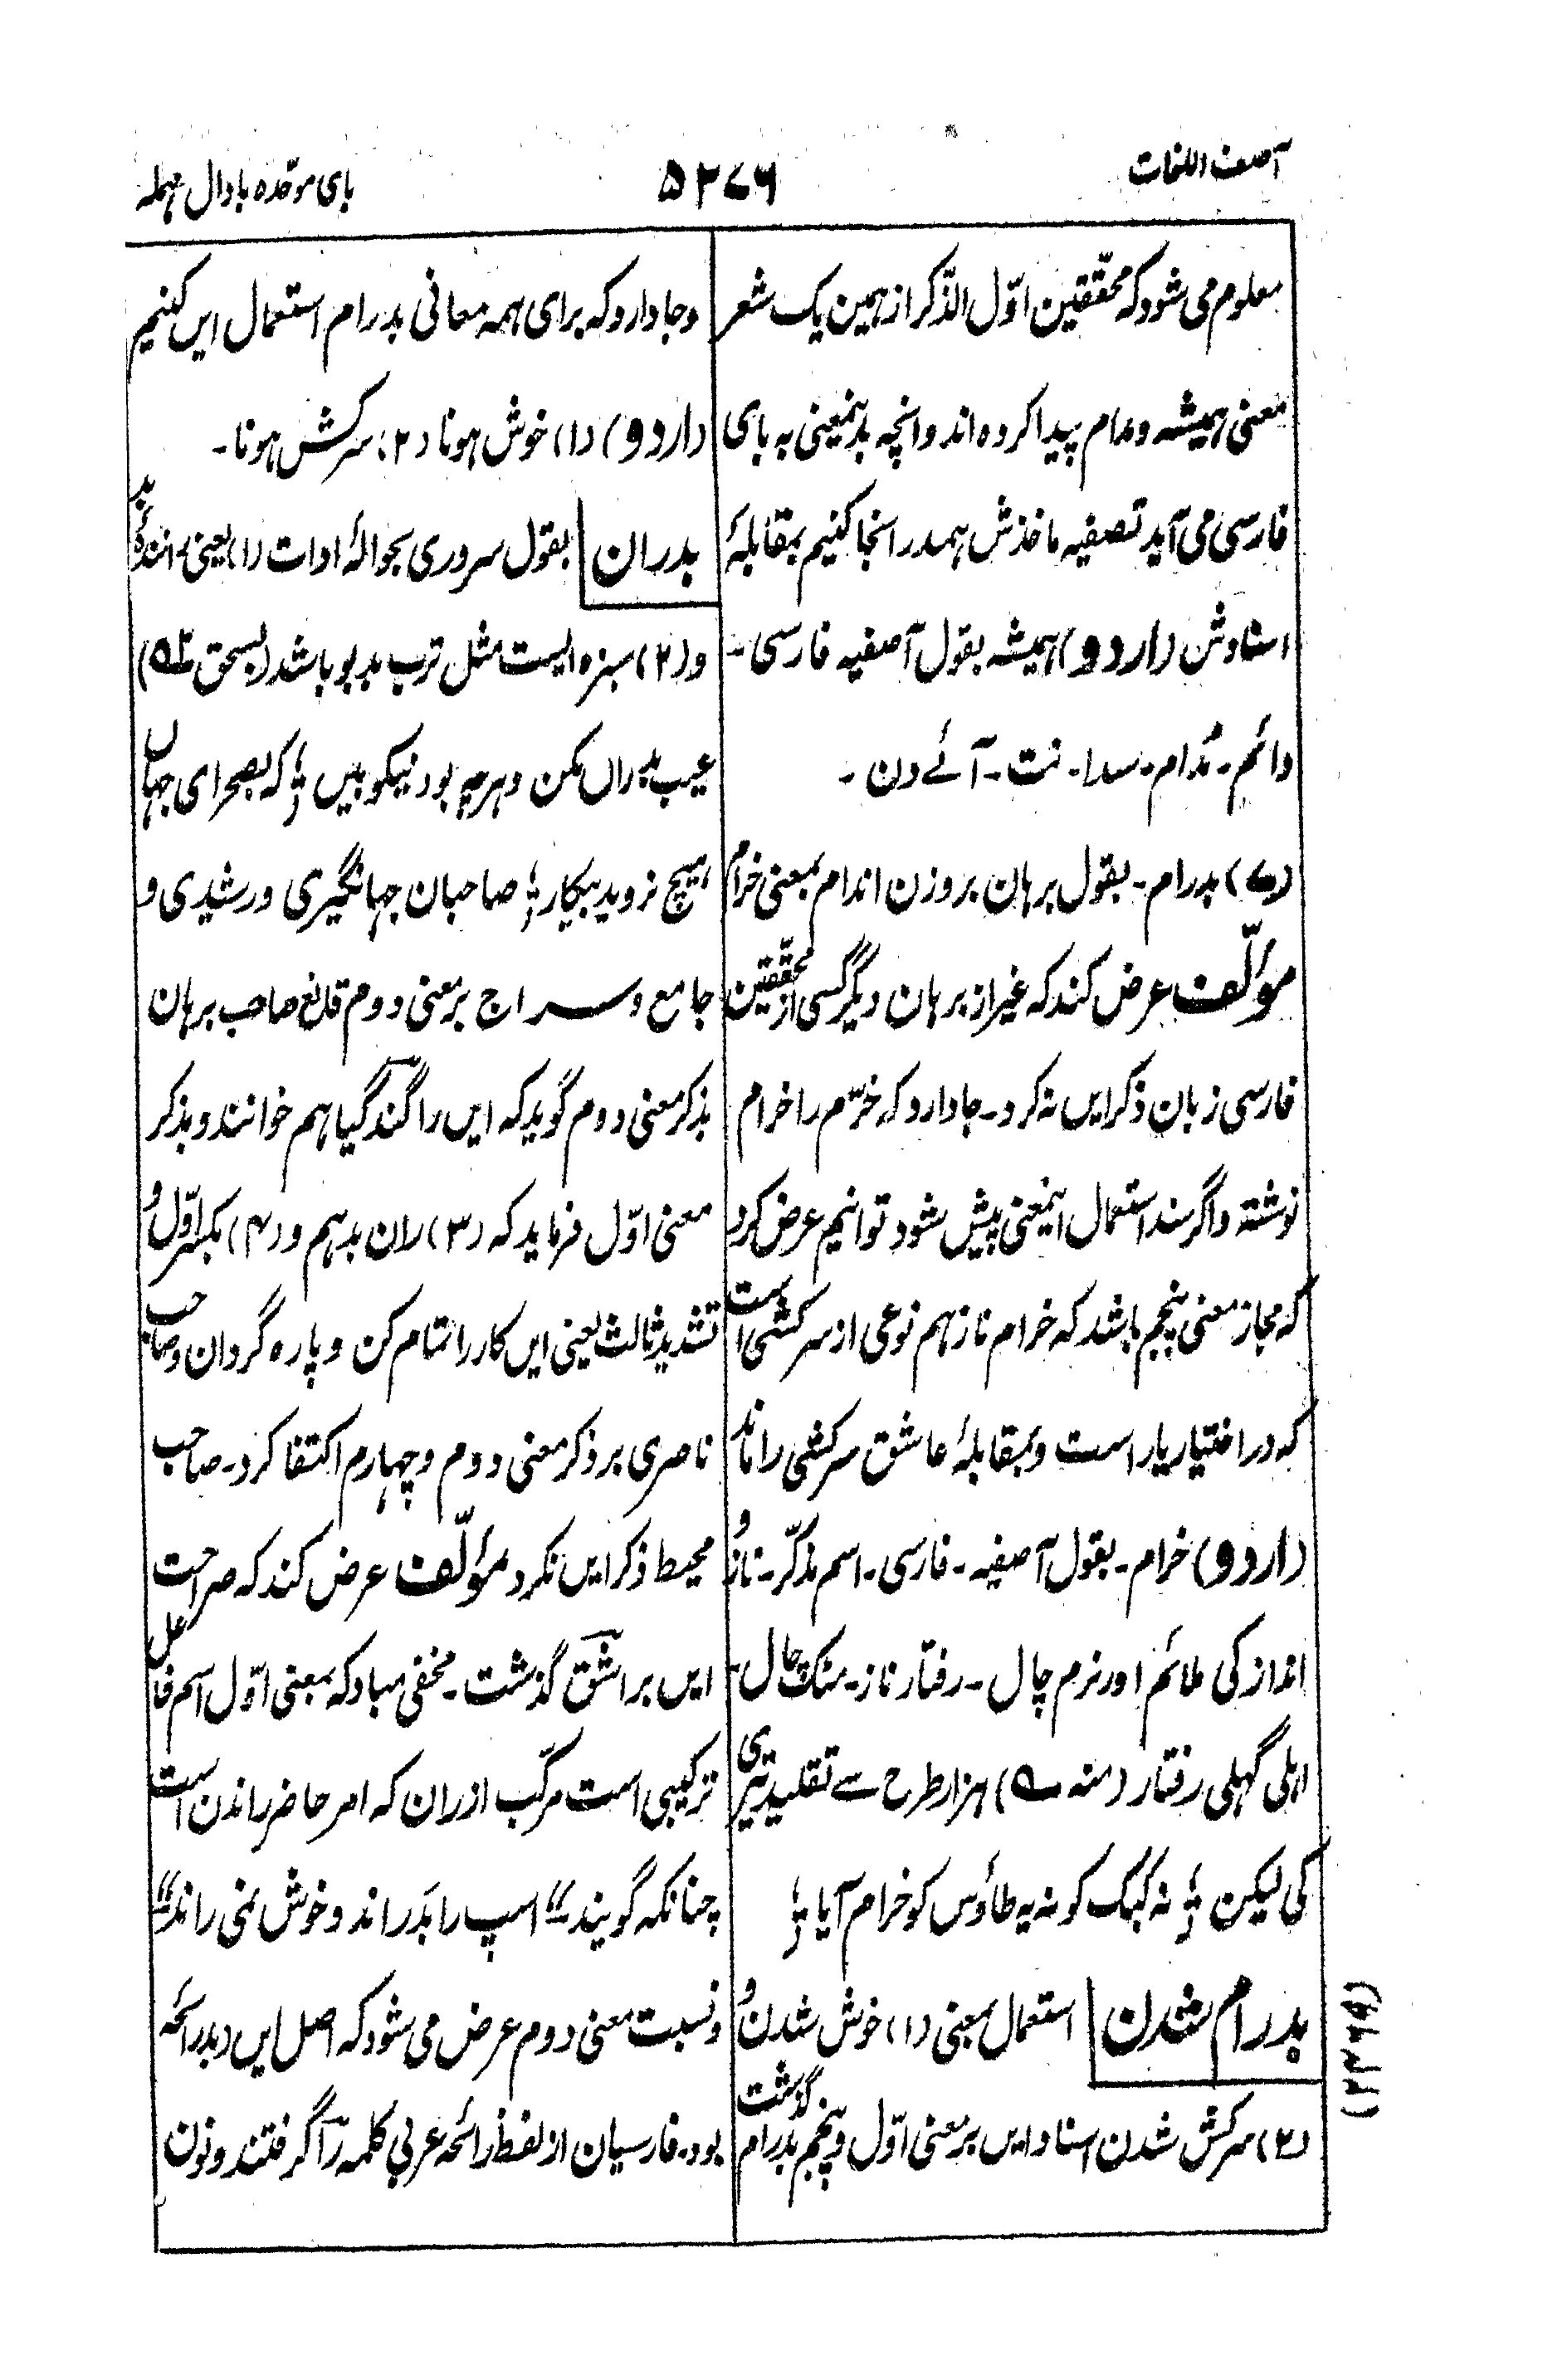 آصف اللغات
۵۲۷۶
بای موحّده با دال مهمله
معلوم می شود که محقّقین اوّل الذّکر از همین یک شعر
معنی همیشه و مدام پیدا کرده اند و انچه بدینمعنی به بای
فارسی می آید تصفیه ماخذش همدر انجا کنیم بمقابلهٔ
اسنادش (اردو) همیشه بقول آصفیه فارسی ۔
دائم ۔ مُدام ۔ سدا ۔ نت ۔ آئے دن ۔
(۷) بدرام ۔ بقول برهان بر وزن اندام بمعنی خرام
مؤلّف عرض کند که غیر از برهان دیگر کسی از محقّقین
فارسی زبان ذکر این نه کرد ۔ جا دارد که خرّم را خرام
نوشته و اگر سند استعمال اینمعنی پیش شود توانیم عرض کرد
که مجاز معنی پنجم باشد که خرام ناز هم نوعی از سرکشی است
که در اختیار یار است و بمقابلهٔ عاشق سرکشی را ماند
(اردو) خرام ۔ بقول آصفیه ۔ فارسی ۔ اسم مذکّر ۔ ناز و
انداز کی ملائم اور نرم چال ۔ رفتار ناز ۔ مٹک چال ۔
اہلی گہلی رفتار (منہ ؎) ہزار طرح سے تقلید تیری
کی لیکن ؛ نہ کبک کو نہ یہ طاؤس کو خرام آیا ؛
بدرام شدن | استعمال بمعنی (۱) خوش شدن و
(۲) سرکش شدن اسناد این بر معنی اوّل و پنجم بدرام گذشت
(۲۲۶۹)
و جا دارد که برای همه معانی بدرام استعمال این کنیم
(اردو) (۱) خوش ہونا (۲) سرکش ہونا ۔
بدران | بقول سروری بحوالهٔ ادات (۱) یعنی رانندهٔ بد
و (۲) سبزه ایست مثل ترب بدبو باشد (بسحق ؎)
عیب بدران مکن و هرچه بود نیکو بین ؛ که بصحرای جهان
هیچ نروید بیکار ؛ صاحبان جهانگیری و رشیدی و
جامع و سراج بر معنی دوم قانع صاحب برهان
بذکر معنی دوم گوید که این را گند گیا هم خوانند و بذکر
معنی اوّل فرماید که (۳) ران بد هم و (۴) بکسر اوّل و
تشدید ثالث یعنی این کار را تمام کن و پاره گردان و صاحب
ناصری بر ذکر معنی دوم و چهارم اکتفا کرد ۔ صاحب
محیط ذکر این نکرد مؤلّف عرض کند که صراحت
این بر اشق گذشت ۔ مخفی مباد که بمعنی اوّل اسم فاعل
ترکیبی است مرکّب از ران که امر حاضر راندن است
چنانکه گویند ”اسپ را بَد راند و خوش نمی راند“
و نسبت معنی دوم عرض می شود که اصل این (بد رائحه
بود ۔ فارسیان از لفظ رائحه عربی کلمه را گرفتند و نون